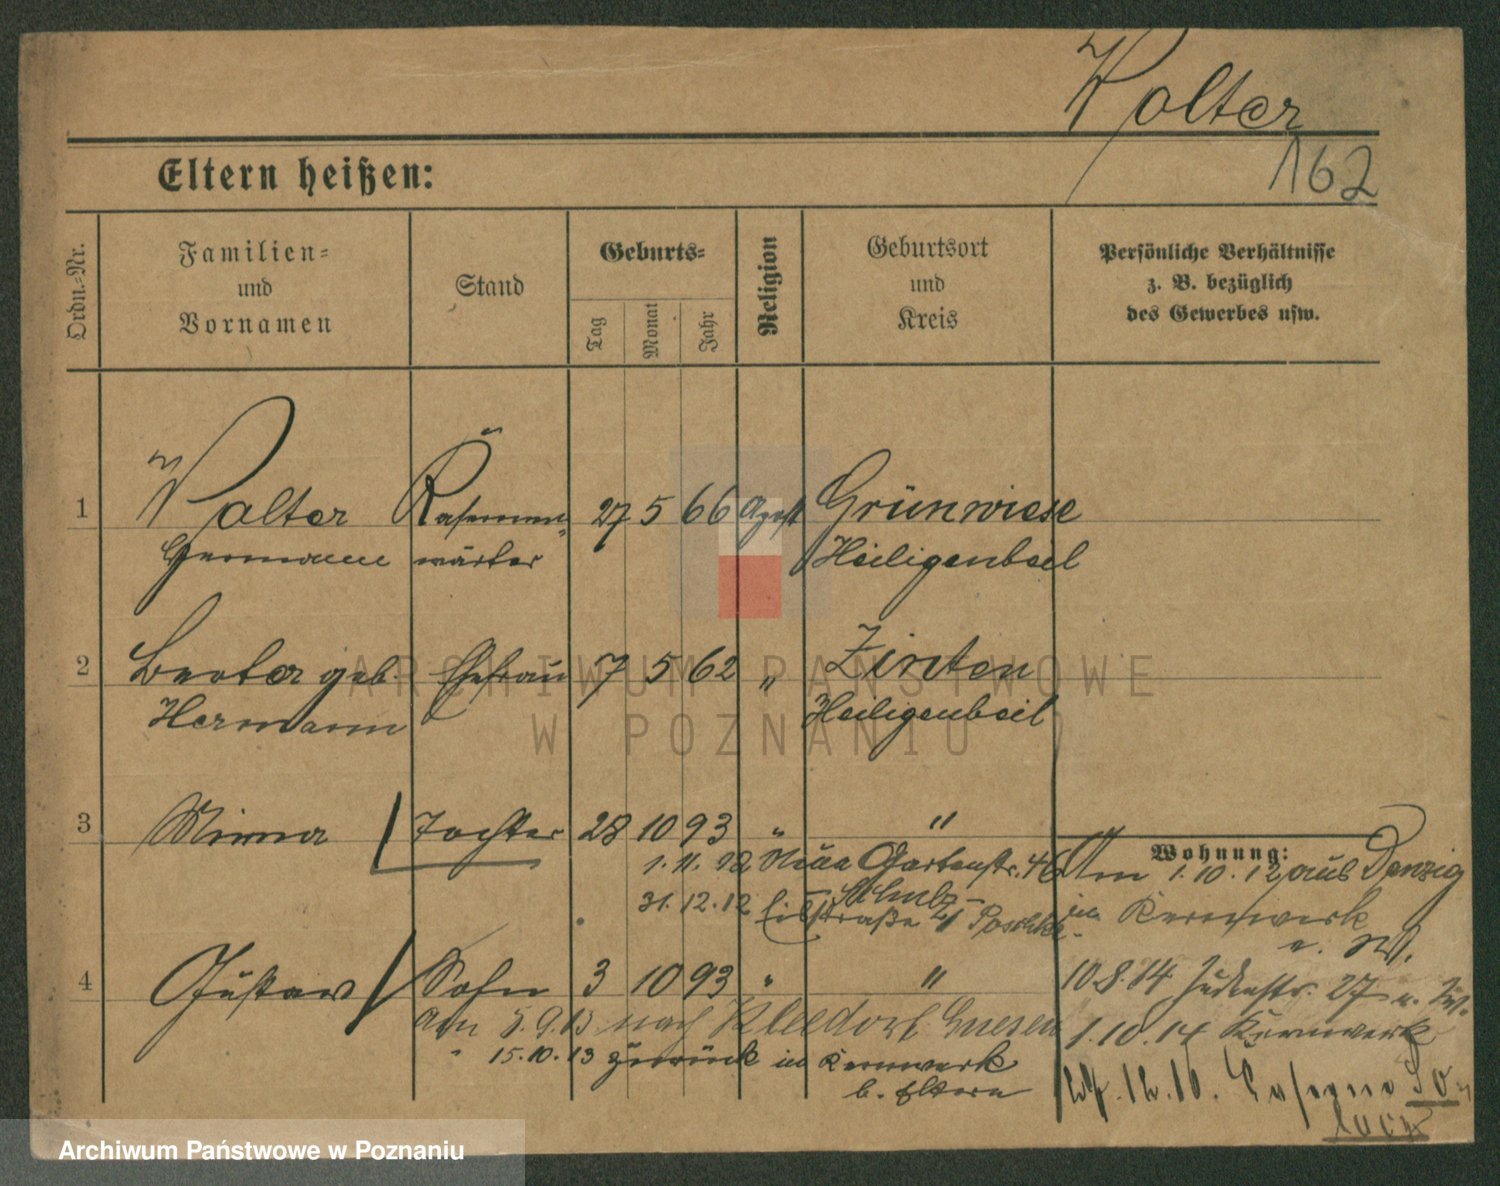 Walter
162
Eltern heißen:
Ordn.-Nr.
Familien-
und
Vornamen
Stand
Geburts-
Tag
Monat
Jahr
Religion
Geburtsort
und
Kreis
Persönliche Verhältnisse
z. B. bezüglich
des Gewerbes usw.
1 Walter Kasernen- 27 5 66 Grünwiese
Hermann wärter Heiligenbeil
2 geb. Ehefrau 7 5 62 " Zinten
Hermann Heiligenbeil
3 Minna Tochter 28 10 93 " "
Wohnung:
1.11.12 Neue Gartenstr. 46
Am 1.10.12 aus Danzig
31.12.12
straße 4
in Kernwerk
4 Gustav Sohn 3 10 93 " "
10.8.14 Judenstr. 27
Am 5.9.13 nach Kleedorf Gnesen
1.10.14 Kernwerk
" 15.10.13 zurück in Kernwerk
b. Eltern
27.12.16.
ARCHIWUM PAŃSTWOWE
W POZNANIU
Archiwum Państwowe w Poznaniu